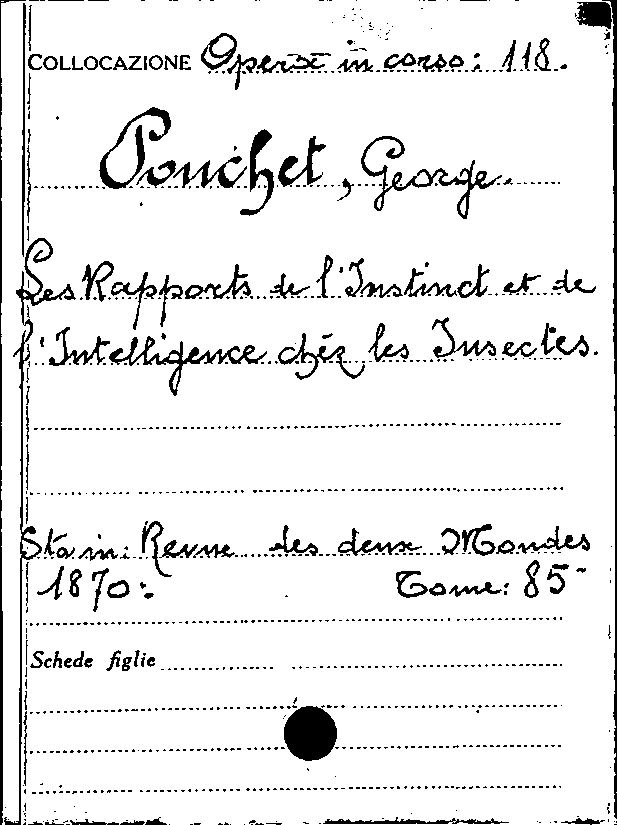 COLLOCAZIONE Opera in corso: 118.
Pouchet, George.
Les Rapports de l'Instinct et de
l'Intelligence chéz les Insectes.
Sta in: Revue des deux Mondes
1870: Tome: 85-
Schede figlie